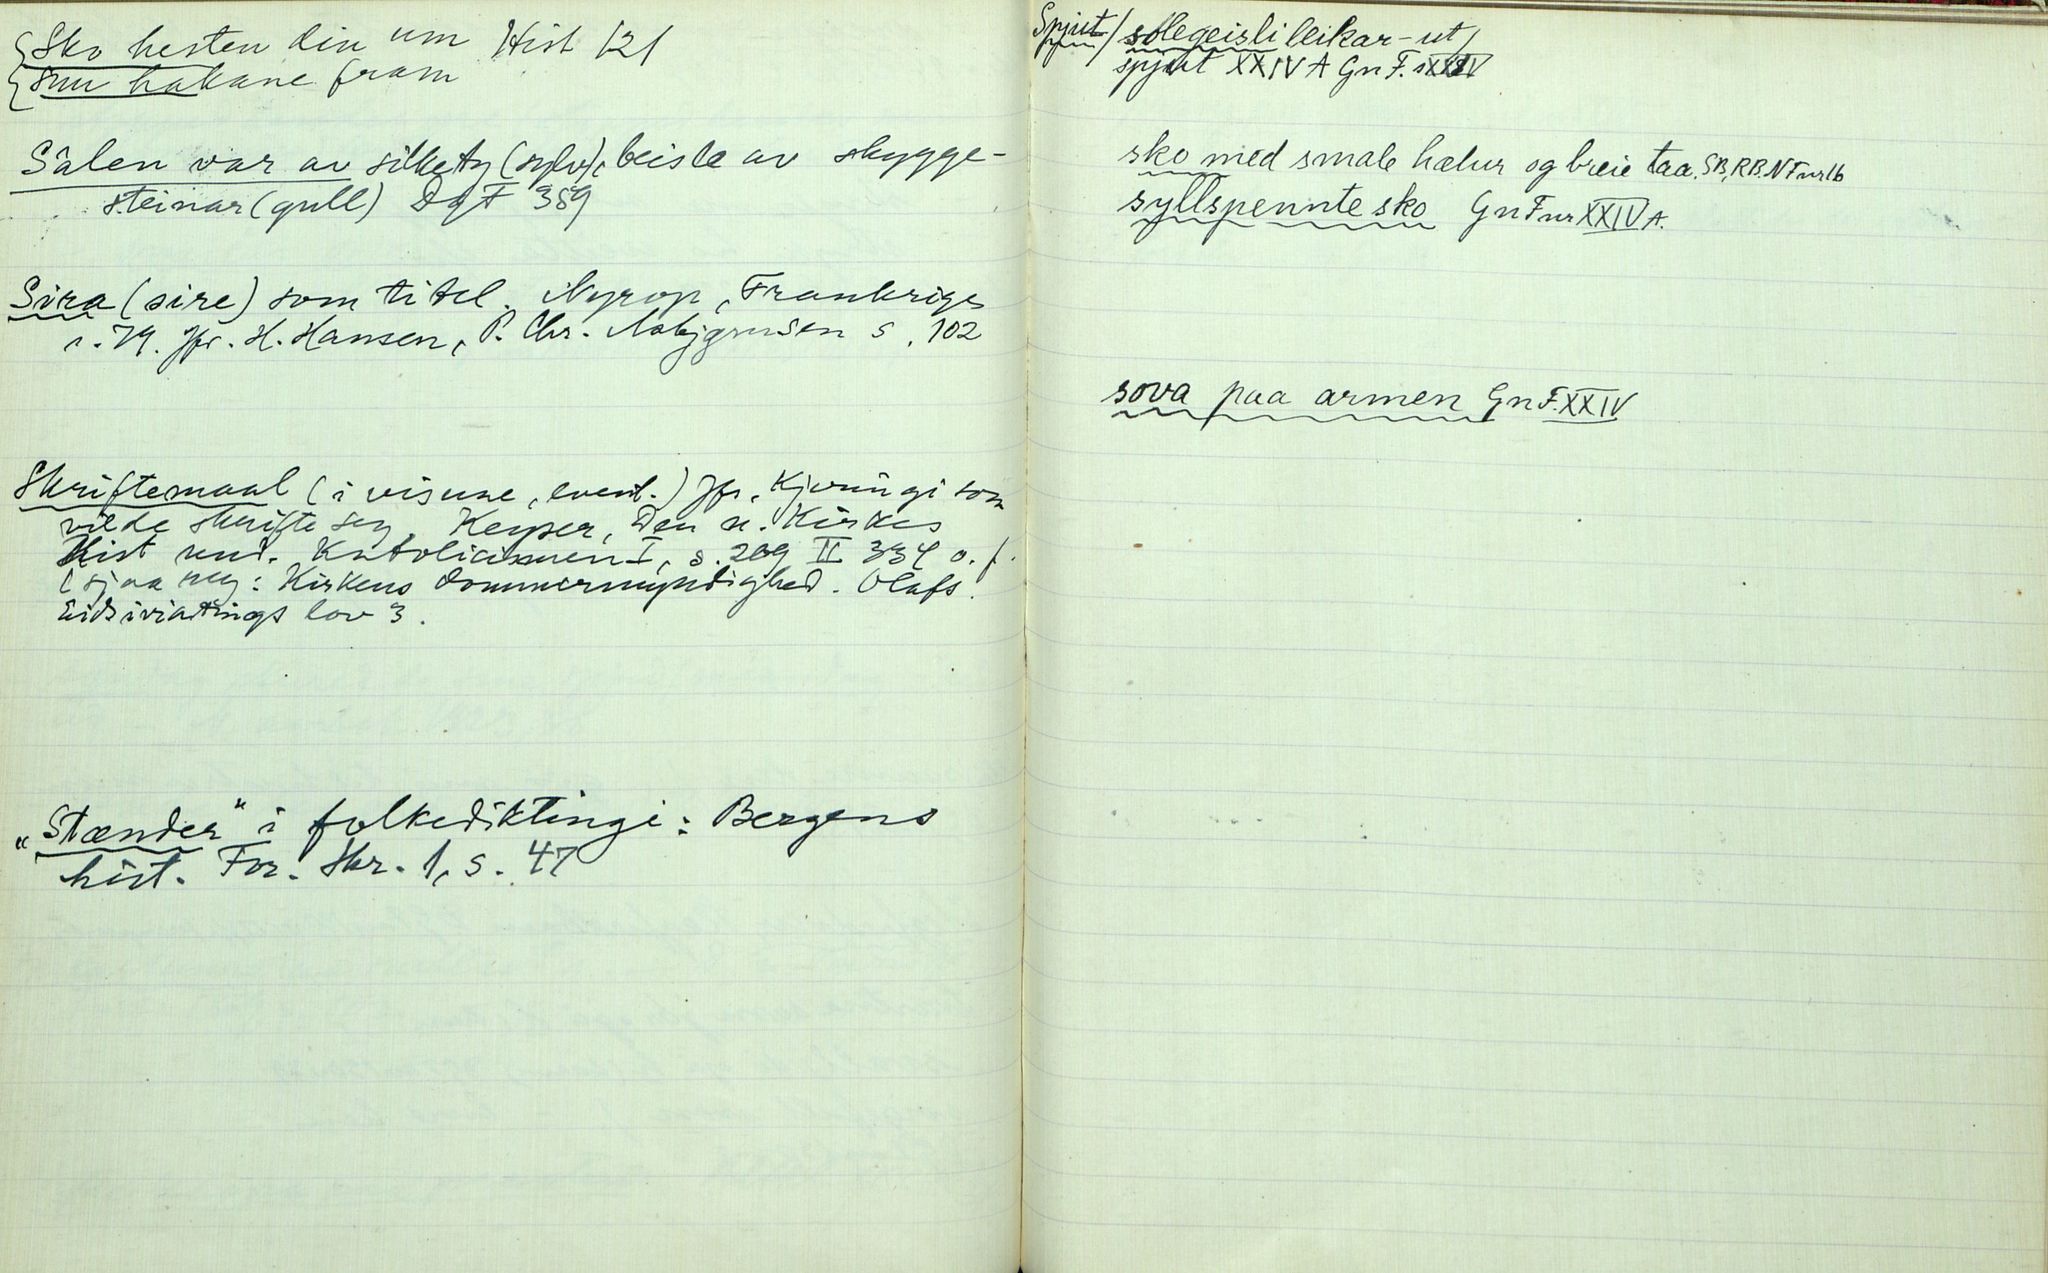 Sko hesten din um Hist 121
snu hakane fram
Sålen var av silkety (sylv), beisle av skygge-
steinar (gull) DgF 389
Sira (sire) som titel. Nyrop, Frankriges
s. 79. Jfr. H. Hansen, P. Chr. s. 102
Skriftemaal (i visune, event.) Jfr. Kjeringi som
vilde skrifte seg. Keyser, Den n. Kirkes
Hist und. Katolicismen I, s. 209 II 334 o. f.
(sjaa reg: Kirkens Dommermyndighed. Olafs.
Eidsivatings lov 3.
"Stænder" i folkediktingi: Bergens
hist. For. Skr. 1, s. 47
Spjut / solegeisli leikar - ut/
spjut XXIV A GnF. XXIV
sko med smale hælur og breie taa. SB, RB. NF nr 16
syllspennte sko GnF nr XXIV A.
sova paa armen GnF. XXIV